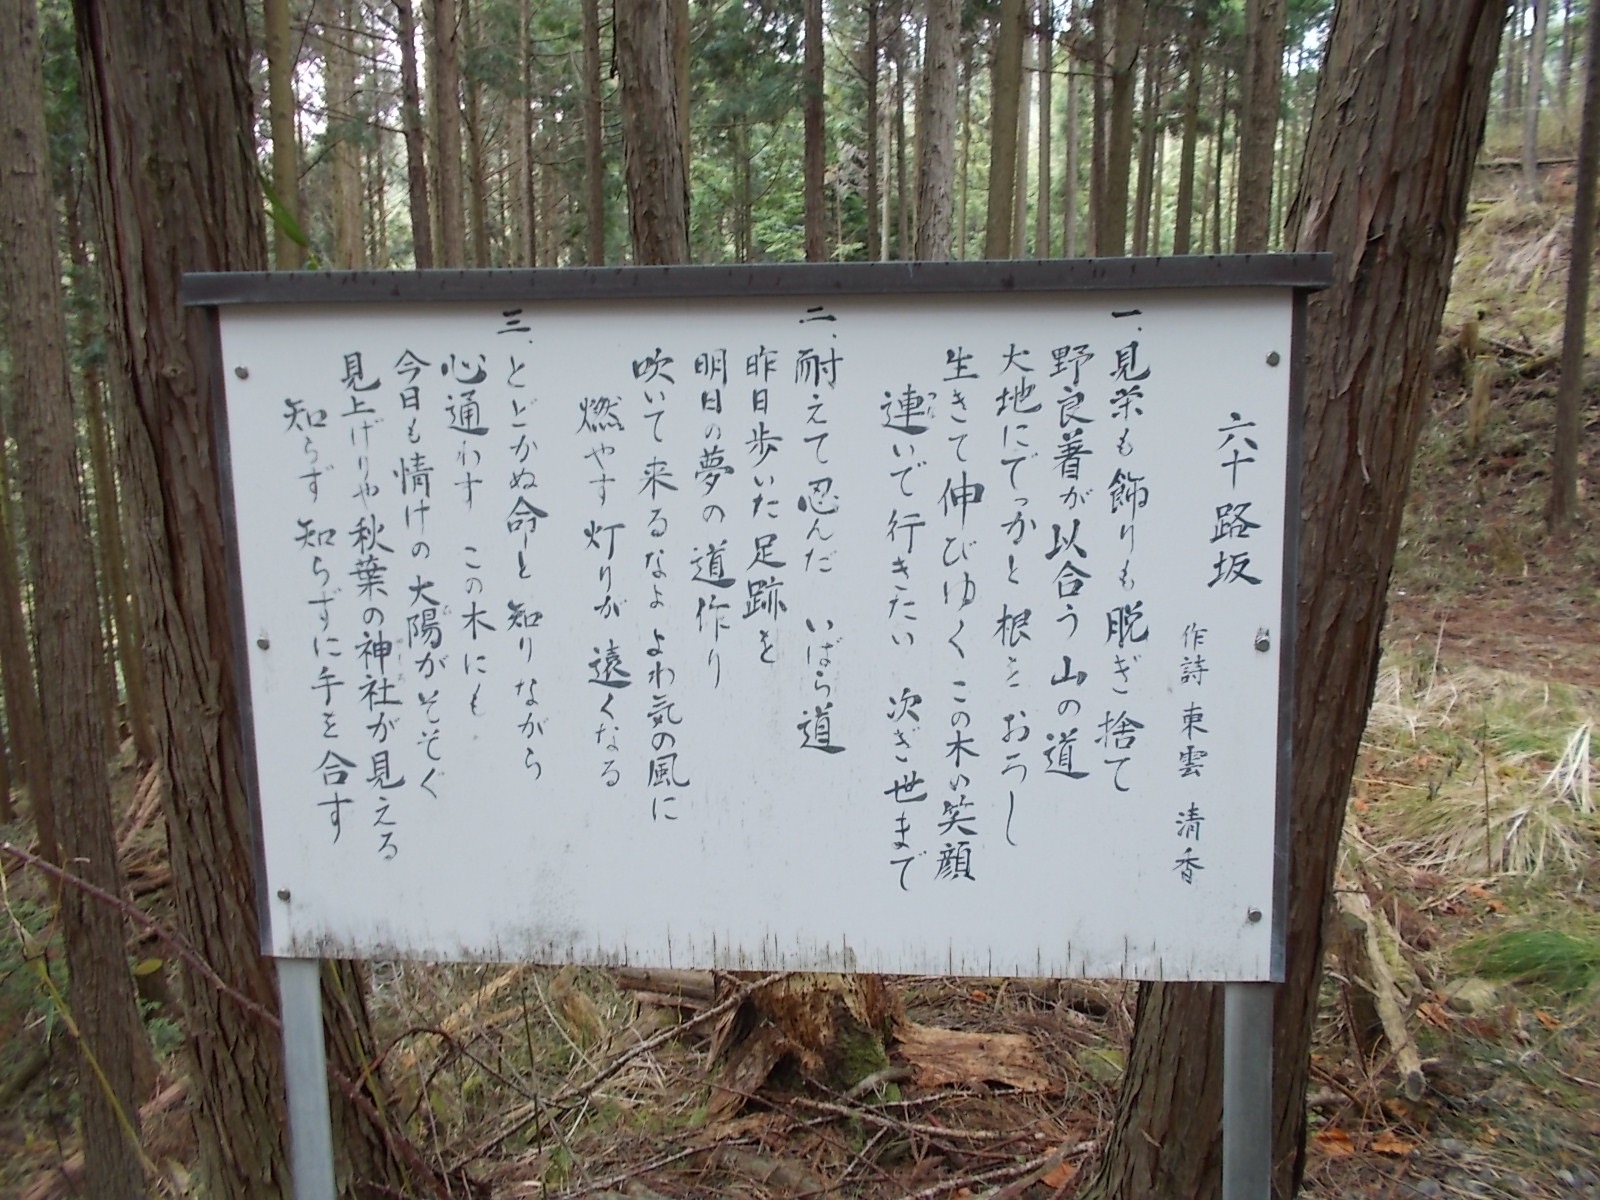 六十路坂
作詩 東雲 清香
一、見栄も飾りも脱ぎ捨て
野良着が以合う山の道
大地にでっかと根をおろし
生きて伸びゆくこの木の笑顔
連いで行きたい 次ぎ世まで
二、耐えて忍んだ いばら道
昨日歩いた足跡を
明日の夢の道作り
吹いて来るなよ よわ気の風に
燃やす灯りが遠くなる
三、とどかぬ命と知りながら
心通わす この木にも
今日も情けの太陽がそそぐ
見上げりや秋葉の神社が見える
知らず知らずに手を合す